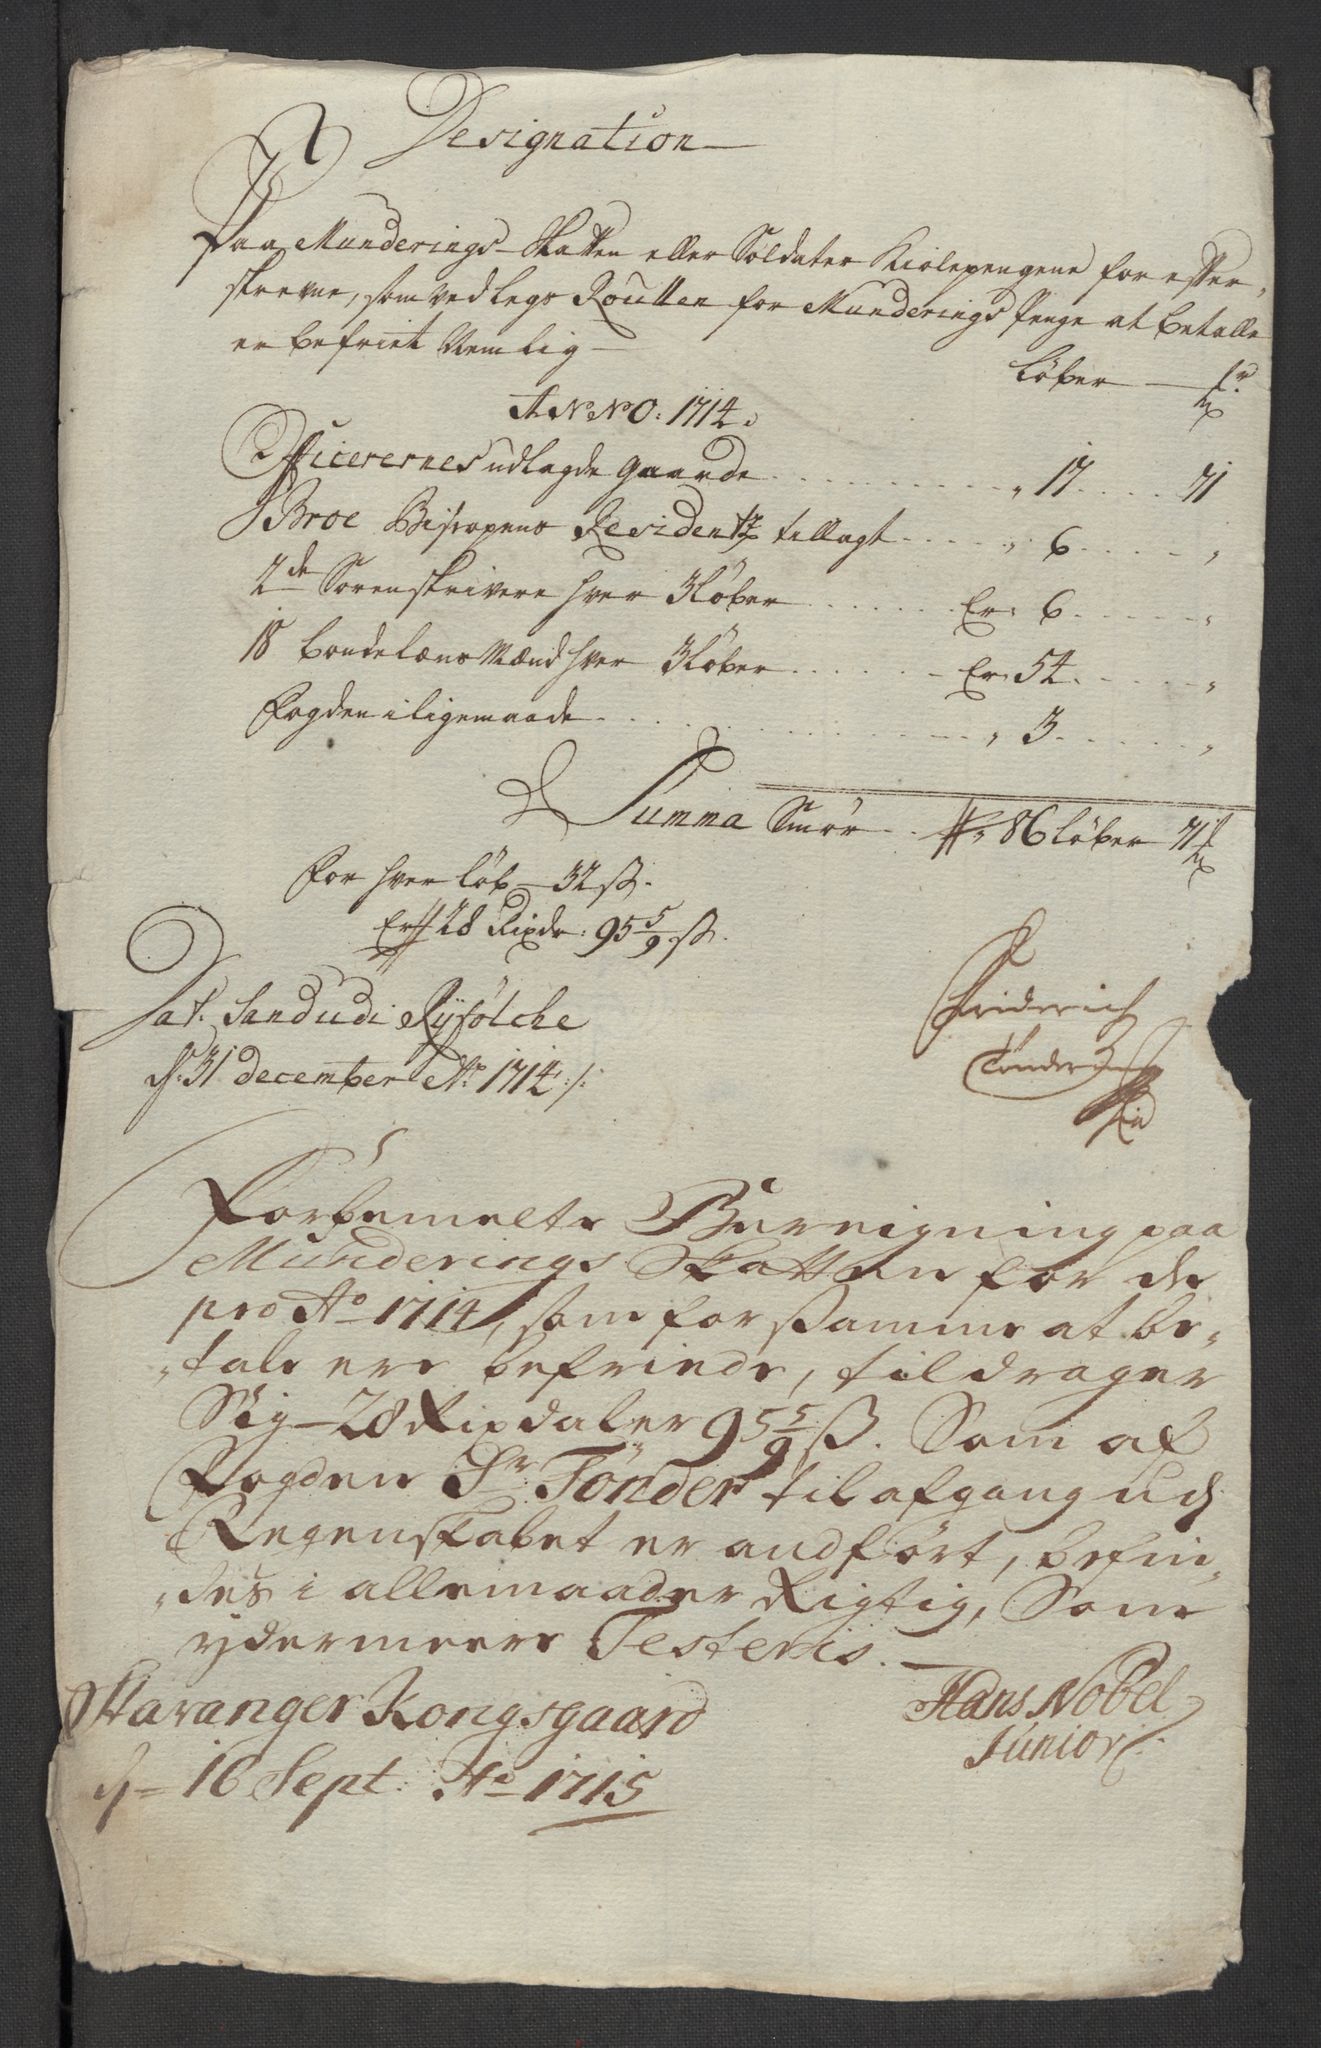 Designation
Paa Munderings-Skatten eller Soldater Kiolepengene for efter-
skrevne, som ved legs Roulten for Munderings Penge at betalle
er befriet Nemlig
Löber — 
ANNO: 1714.
Officerernes udlagde gaarde " 17 71
Broe Bispopens Residentz tillagt " 6 "
2de Sorenskrivere hver 3 löber Er: 6 "
18 bondelænsmænd hver 3 löber Er: 54 "
Fogden i ligemaade " 3 "
Summa Smör 86 löber 71
for hver löb — 32 ß.
Er 28 Rixdr: 95 5/9 ß.
Dat. Sandudi Ryfölche
d: 31 december Ao 1714 ./.
Friderich
Tonder
Forbemelte Bereigning paa
Munderings Skatten for de
pro Ao 1714, som for samme at be-
-tale ere befriede, tildrager
Sig — 28 Rixdaler 95 5/9 ß. Som af
Fogden Sr Tönder til afgang ud j
Regenskabet er andfört, befin-
-des i allemaader Rigtig, Som
ydermeere Testeris.
Stavanger Kongsgaard
d — 16 Sept. Ao 1715
Hans Nobel
Junior